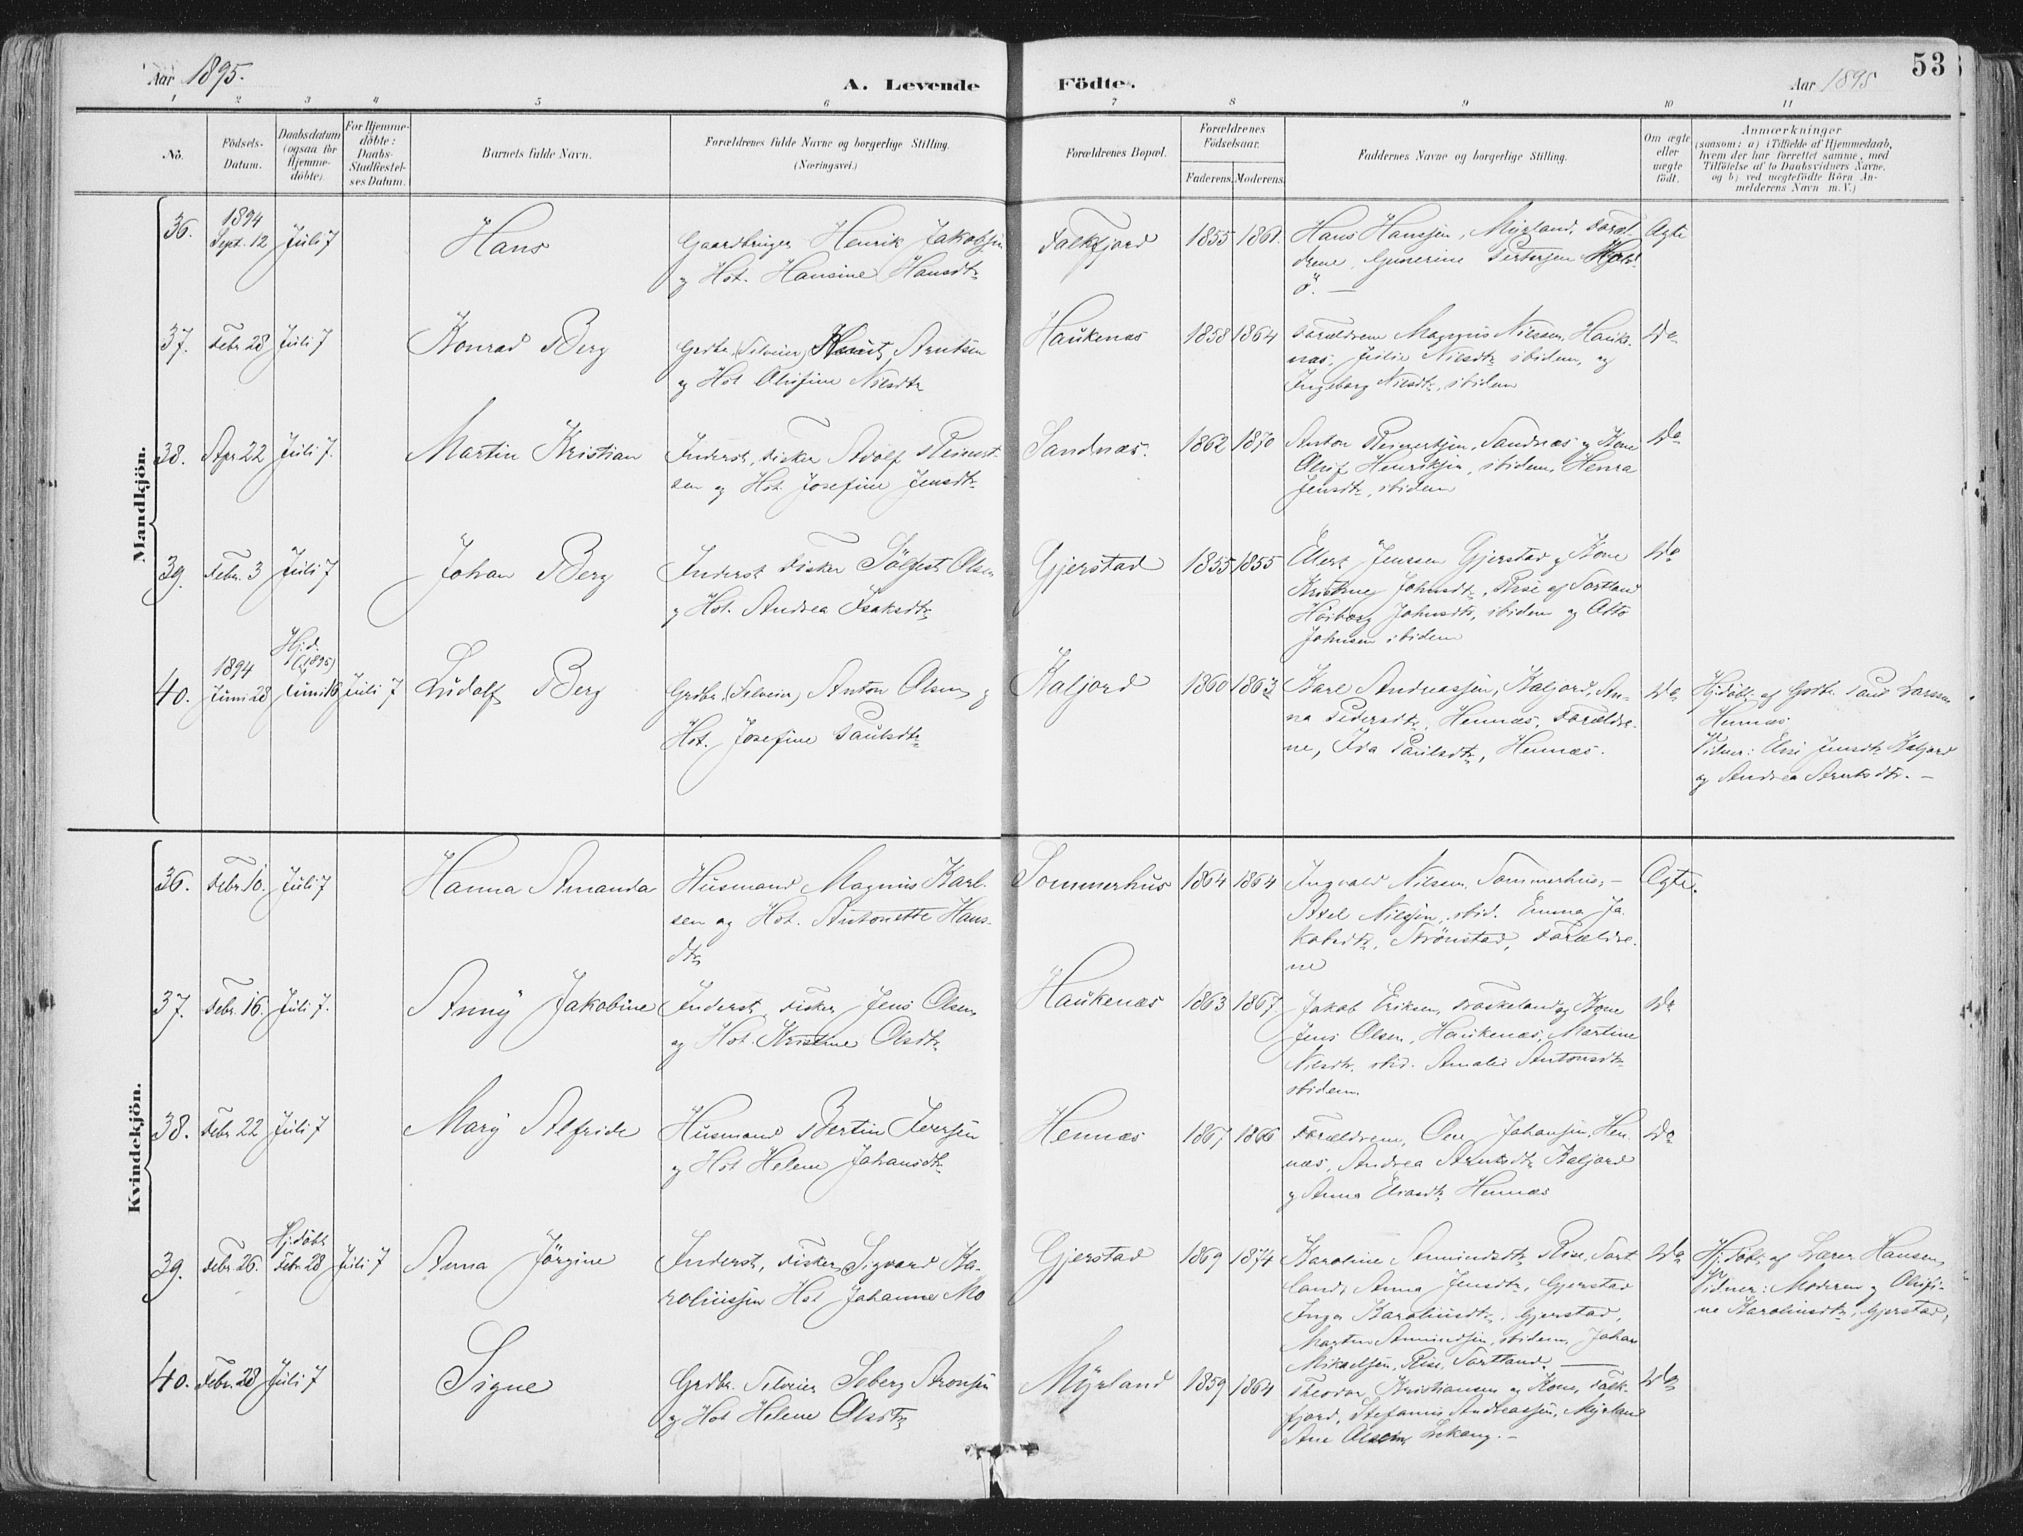 Aar 1895.
A. Levende
Födte.
Aar 1895
53
1 2 3 4 5 6 7 8 9 10 11
No.
Födsels-
Datum.
Daabsdatum
(ogsaa for
Hjemme-
döbte).
For Hjemme-
döbte:
Daabs-
Stadfæstel-
ses Datum.
Barnets fulde Navn.
Forældrenes fulde Navne og borgerlige Stilling.
(Næringsvei.)
Forældrenes Bopæl.
Forældrenes
Födselsaar.
Faderens. Moderens.
Faddernes Navne og borgerlige Stilling.
Om ægte
eller
uægte
födt.
Anmærkninger
(saasom: a) i Tilfælde af Hjemmedaab,
hvem der har forrettet samme, med
Tilföielse af to Daabsvidners Navne,
og b) ved uægtefödte Börn An-
melderens Navn m. V.)
Mandkjön.
36.
1894
Sept. 12
Juli 7
Hans
Gaardbruger Henrik Jakobsen
og Hst. Hansine Hansdtr
Falkfjord
1855
1861.
Hans Hansen, Myrland, Foræl-
drene,
ö. —
Ægte
37.
Febr 28
Juli 7
Konrad Berg
Grdbr. (Selveier) Knut Arntsen
og Hst Olufine Nilsdtr
Haukenæs
1858
1864
Forældrene Magnus Nilsen, Hauke-
næs, Julie Nilsdtr ibidem, og
Ingeborg Nilsdtr, ibidem
Do
38.
Apr 22
Juli 7.
Martin Kristian
Inderst, Fisker Adolf Reinert-
sen og Hst. Josefine Jensdtr
Sandnæs.
1862
1870
Anton Reinertsen, Sandnæs og Kone
Oluf Henriksen, ibidem, Henra
Jensdtr, ibidem
Do
39.
Febr. 3
Juli 7
Johan Berg
Inderst Fisker Sölfest Olsen
og Hst. Andrea Isaksdtr
Gjerstad
1855
1855
Elert Jenssen Gjerstad og Kone
Kristine Johnsdtr, Rise af Sortland
Höiborg Johnsdtr, ibidem og Otto
Johnsen ibidem
Do
40.
1894
Juni 28
Hj.d.
(1895)
Juni 16
Juli 7
Ludolf Berg
Grdbr. (Selveier) Anton Olsen og
Hst. Josefine Paulsdtr
Kaljord
1860
1863
Karl Andreassen, Kaljord, An-
na Pedersdtr, Hennæs, Forældre-
ne, Ida Paulsdtr, Hennæs.
Do
Hj.döbt af Grdbr. Paul Larssen
Hennæs
Vidner: Elise Jensdtr Kaljord
og Andrea Arntsdtr. —
Kvindekjön.
36.
Febr 10.
Juli 7
Hanna Amanda
Husmand Magnus Karl-
sen og Hst. Antonette Hans-
dtr
Sommerhus
1864
1864
Ingvald Nilsen, Sommerhus, —
Axel Nilsen, ibid. Emma Ja-
kobsdtr, Strönstad, Forældre-
ne
Ægte.
37.
Febr. 16.
Juli 7.
Anny Jakobine
Inderst, Fisker Jens Olsen
og Hst. Kristine Olsdtr
Haukenæs
1863
1867.
Jakob Eriksen, og Kone
Jens Olsen, Haukenæs, Martine
Nilsdtr. ibid. Amalie Antonsdtr
ibidem.
Do
38.
Febr. 22
Juli 7
Mary Alfride
Husmand Bertin Iversen
og Hst Helene Johansdtr
Hennæs
1867
1866
Forældrene, Ove Johansen, Hen-
næs, Andrea Arntsdtr Kaljord
og Anna Eliasdtr Hennæs
Do
39.
Febr. 26.
Hj.döbt
Febr 28
Juli 7
Anna Jörgine
Inderst, Fisker Sigvard Ka-
roliussen Hst Johanna Mo
Gjerstad
1869
1874
Karoline Amundsdtr, Rise, Sort
land, Anna Jensdtr, Gjerstad
Inga Karoliusdtr, Gjerstad,
Martin Amundsen, ibidem, Johan
Mikaelsen, Rise, Sortland. —
Do
Hj.döbt af Lærer Hansen,
Vidner: Moderen og Olufi-
ne Karoliusdtr, Gjerstad,
40.
Febr. 28
Juli 7
Signe
Grdbr. Selveier Seberg Aronsen
og Hst Helene Olsdtr
Myrland
1859
1864
Theodor Kristiansen og Kone, Falk-
fjord, Stefanus Andreassen, Myrland
Ane Olsen, Lekang. —
Do